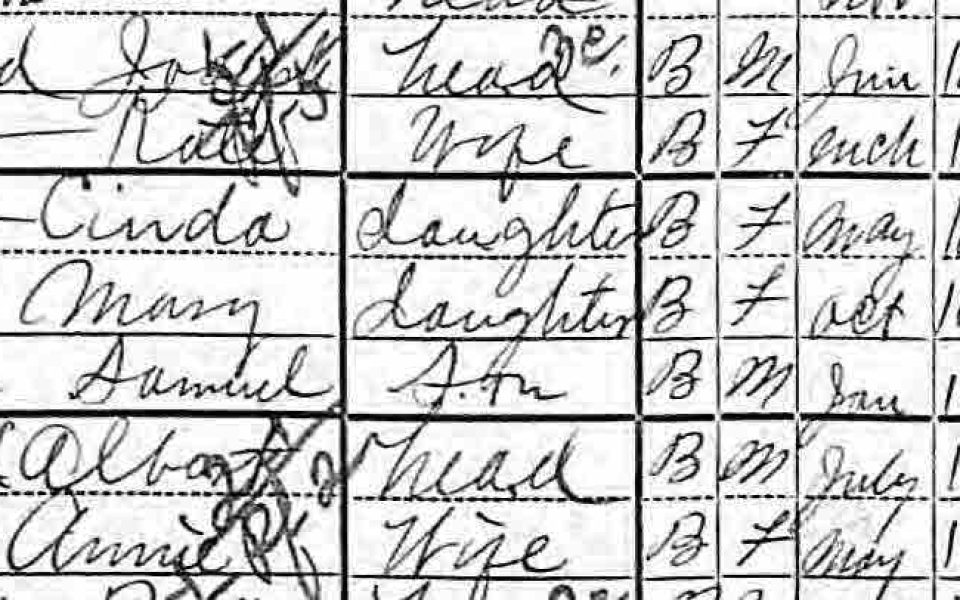 d Joseph head B M Jun 1
— Kate Wife B F Mch 1
— Cinda daughter B F May 1
Mary daughter B F Oct 1
Samuel Son B M Jan 1
Albert head B M July 1
Annie Wife B F May 1